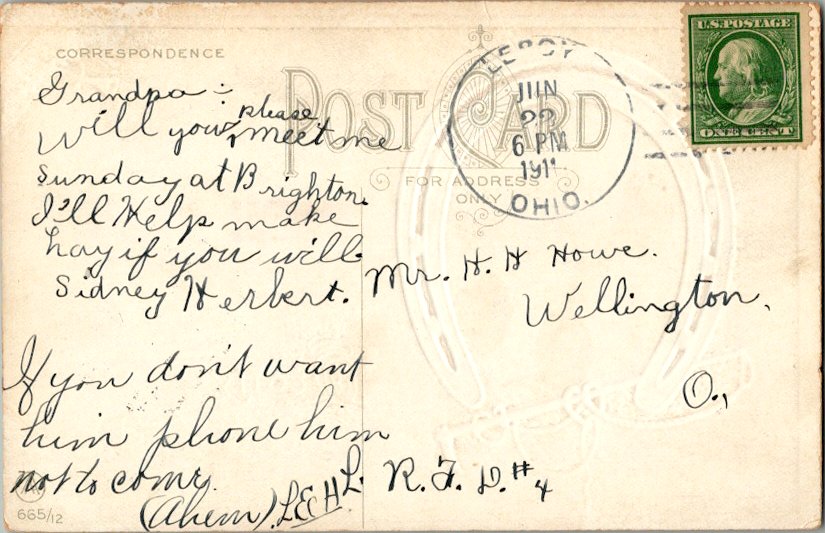 CORRESPONDENCE
POST CARD
FOR ADDRESS
ONLY
U.S. POSTAGE
ONE CENT
LEROY
JUN
22
6 PM
1911
OHIO.
Grandpa :-
Will you please meet me
Sunday at Brighton.
I'll Help make
hay if you will.
Sidney Herbert.
If you don't want
him phone him
not to come.
(Ahem) L E H
Mr. H. H Howe.
Wellington,
O.,
R. F. D. #4
665/12